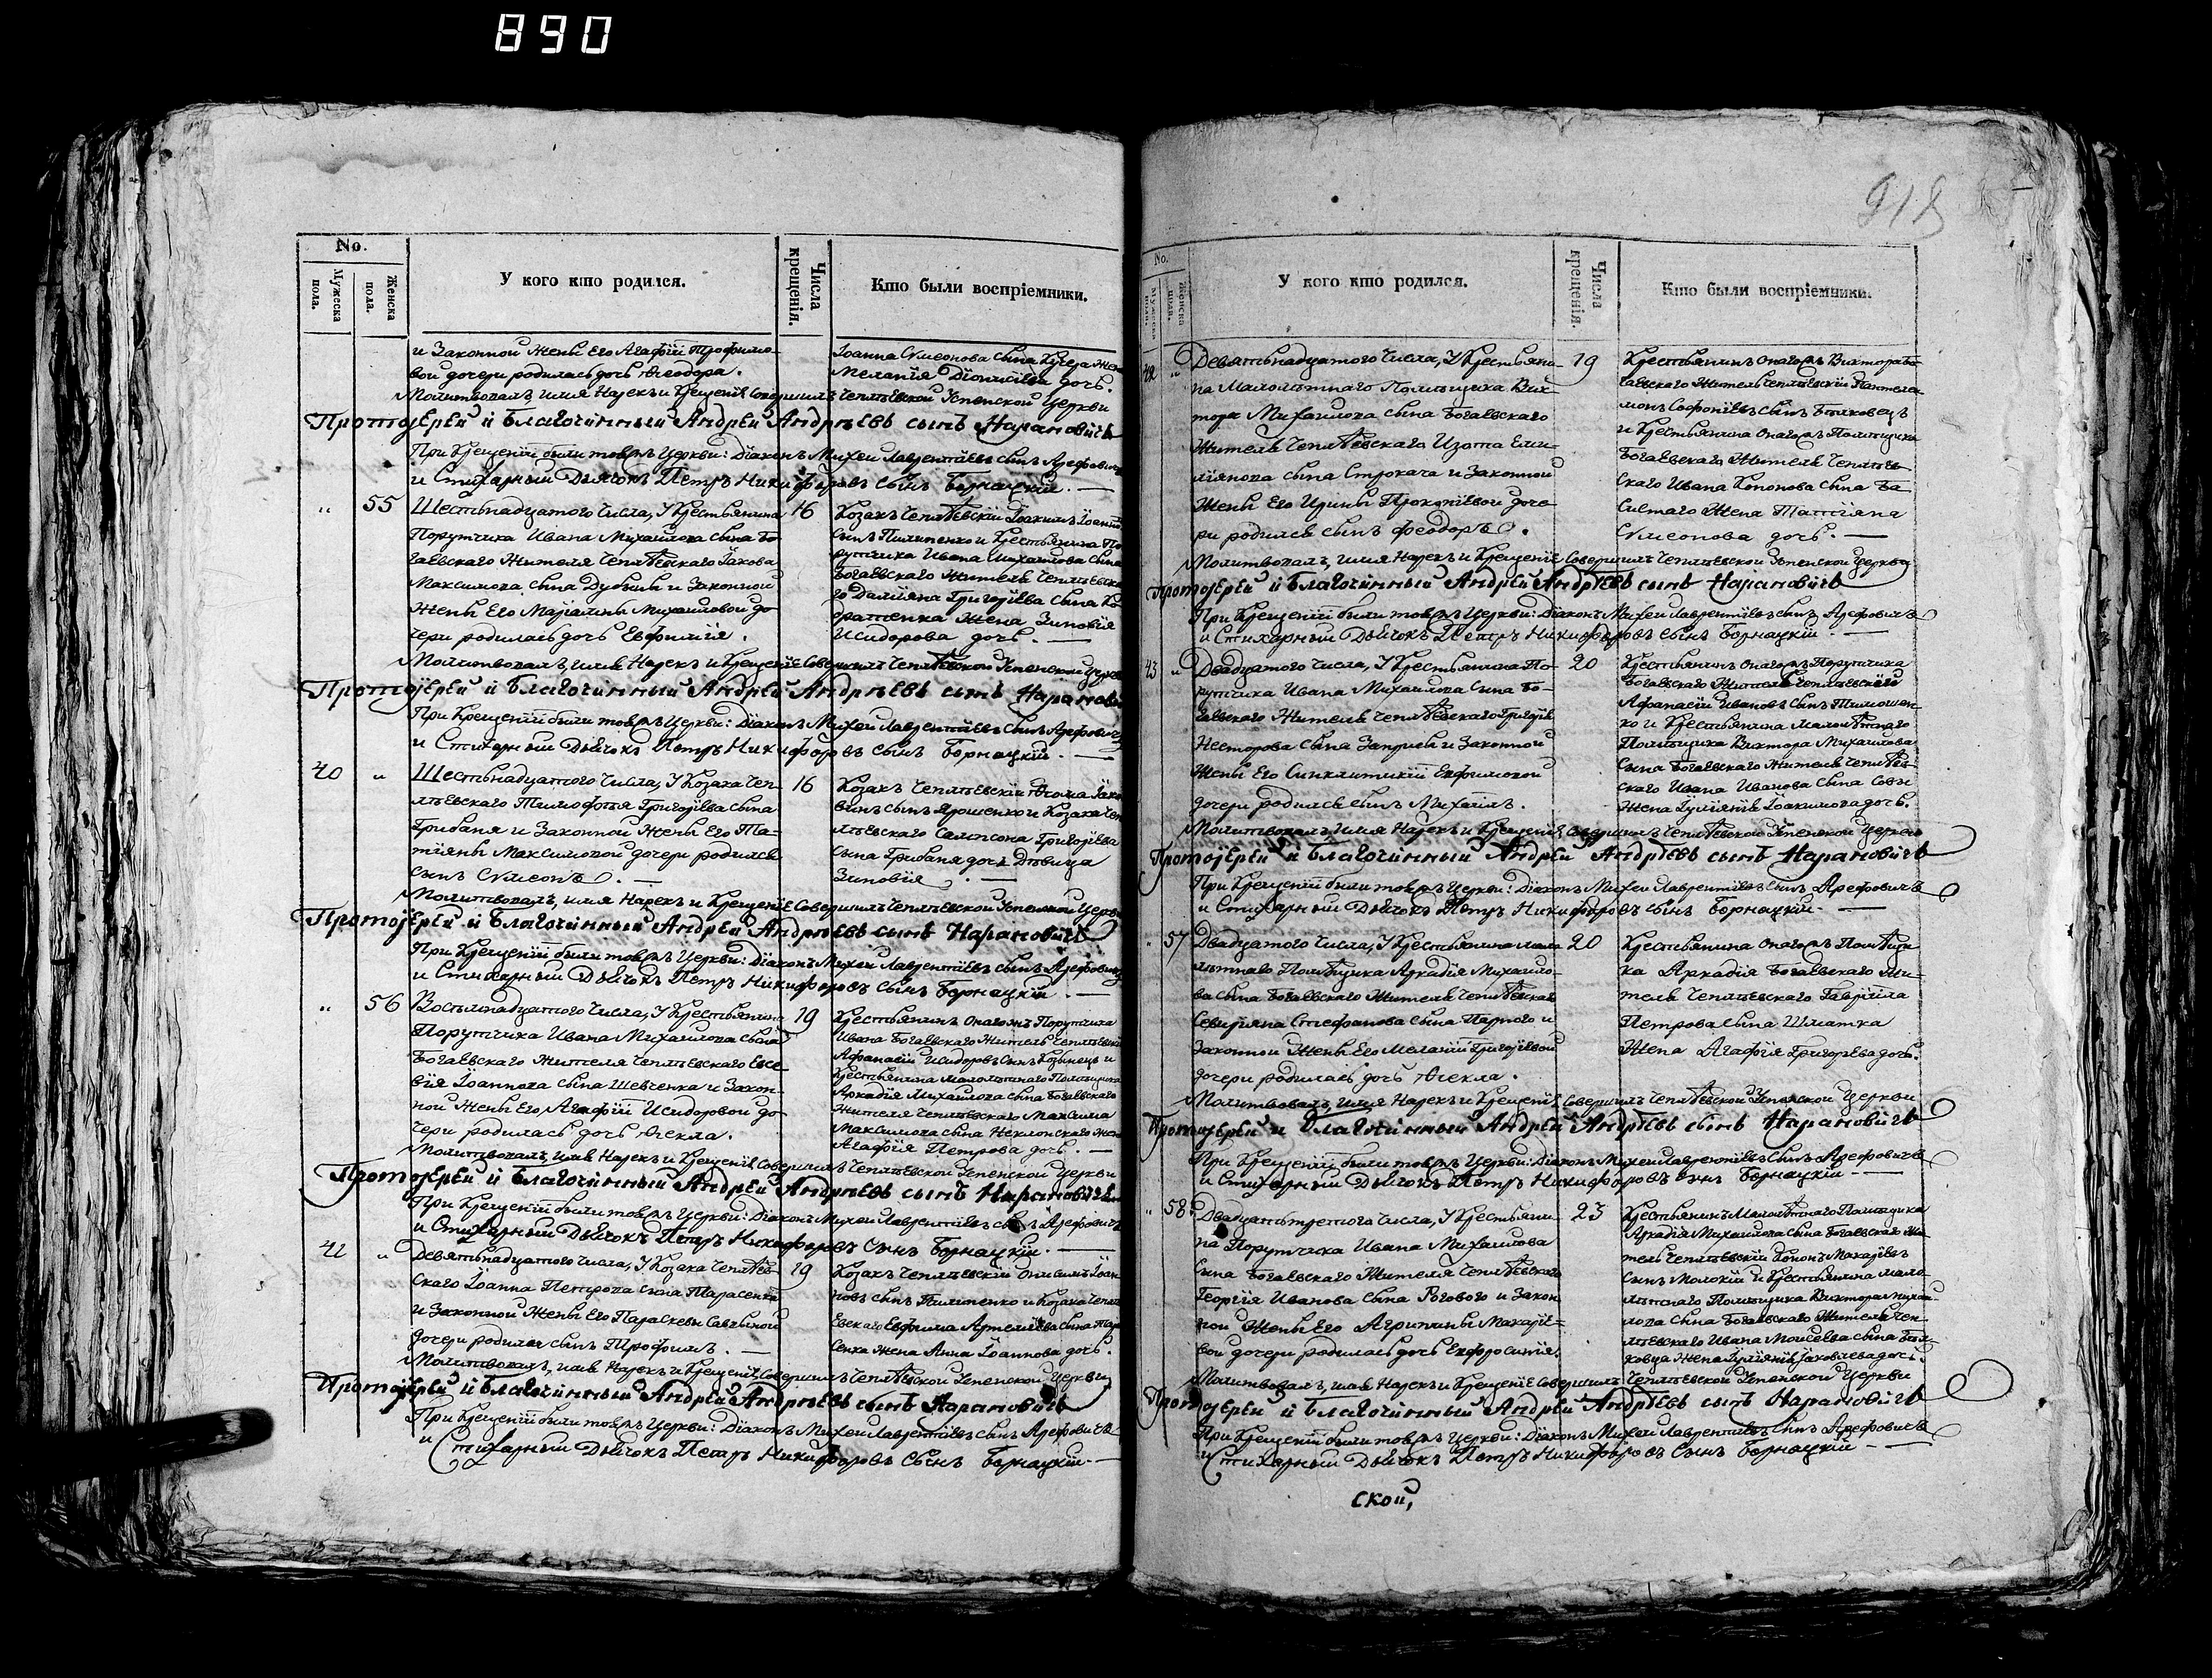 890
No.
Мужеска пола.
Женска пола.
У кого кто родился.
Числа крещенія.
Кто были воспріемники.
и Законной Жены Его Агафіи Трофимо-
вой дочери родилась дочь Ѳеодора.
Іоанна Симеонова Сына Кучера Жена
Меланія Діонисіева дочь.
Молитвовалъ, имя Нарекъ и Крещеніе Совершилъ Чеплѣевской Успенской Церкви
Протоіерей и Благочинный Андрей Андреевъ сынъ Нарановичъ
При Крещеніи были тояжъ Церкви: Діаконъ Михей Лаврентіевъ Сынъ Арефовичъ
и Стихарный Дьячокъ Петръ Никифоровъ Сынъ Борнацкій.
" 55 Шестьнадцатого Числа, У Крестьянина
Порутчика Ивана Михайлова Сына Бо-
гаевскаго Жителя Чеплѣевскаго Іакова
Максимова Сына Дубины и Законной
Жены Его Маріанны Михайловой до-
чери родилась дочь Евфимія.
16
Козакъ Чеплѣевскій Іоакимъ Іоанновъ
Сынъ Пилипенко и Крестьянина По-
рутчика Ивана Михайлова Сына
Богаевскаго Жителя Чеплѣевска-
го Даміяна Григоріева Сына Ко-
дратенка Жена Зиновія
Исидорова дочь.
Молитвовалъ, имя Нарекъ и Крещеніе Совершилъ Чеплѣевской Успенской Церкви
Протоіерей и Благочинный Андрей Андреевъ сынъ Нарановичъ
При Крещеніи были тояжъ Церкви: Діаконъ Михей Лаврентіевъ Сынъ Арефовичъ
и Стихарный Дьячокъ Петръ Никифоровъ Сынъ Борнацкій.
40 " Шестьнадцатого Числа, У Козака Чеп-
лѣевскаго Тимофѣя Григоріева Сына
Грибаня и Законной Жены Его Та-
тіяны Максимовой дочери родился
сынъ Симеонъ.
16
Козакъ Чеплѣевскій Ѳома Іако-
винъ Сынъ Ярошенко и Козака Чеп-
лѣевскаго Сампсона Григоріева
Сына Грибаня дочь Дѣвица
Зиновія.
Молитвовалъ, имя Нарекъ и Крещеніе Совершилъ Чеплѣевской Успенской Церкви
Протоіерей и Благочинный Андрей Андреевъ сынъ Нарановичъ
При Крещеніи были тояжъ Церкви: Діаконъ Михей Лаврентіевъ Сынъ Арефовичъ
и Стихарный Дьячокъ Петръ Никифоровъ Сынъ Борнацкій.
" 56 Восьмнадцатого Числа, У Крестьянина
Порутчика Ивана Михайлова Сына
Богаевскаго Жителя Чеплѣевскаго Евсе-
вія Іоаннова Сына Шевченка и Закон-
ной Жены Его Агафіи Исидоровой до-
чери родилась дочь Ѳекла.
19
Крестьянинъ Онагожъ Порутчика
Ивана Богаевскаго Житель Чеплѣевскій
Афанасій Исидоровъ Сынъ Козинецъ и
Крестьянина Малолѣтнаго Помѣщика
Аркадія Михайлова Сына Богаевскаго
Жителя Чеплѣевскаго Максима
Максимова Сына Неклонскаго Жена
Агафія Петрова дочь.
Молитвовалъ, имя Нарекъ и Крещеніе Совершилъ Чеплѣевской Успенской Церкви
Протоіерей и Благочинный Андрей Андреевъ сынъ Нарановичъ
При Крещеніи были тояжъ Церкви: Діаконъ Михей Лаврентіевъ Сынъ Арефовичъ
и Стихарный Дьячокъ Петръ Никифоровъ Сынъ Борнацкій.
41 " Девятьнадцатого Числа, У Козака Чеплѣев-
скаго Іоанна Петрова Сына Тарасенка
и Законной Жены Его Параскевы Саввиной
дочери родился Сынъ Трофимъ.
19
Козакъ Чеплѣевскій Онисимъ Іоан-
новъ Сынъ Пилипенко и Козака Чепл-
евскаго Евфима Артеміева Сына Тара-
сенка Жена Анна Іоаннова дочь.
Молитвовалъ, имя Нарекъ и Крещеніе Совершилъ Чеплѣевской Успенской Церкви
Протоіерей и Благочинный Андрей Андреевъ сынъ Нарановичъ
При Крещеніи были тояжъ Церкви: Діаконъ Михей Лаврентіевъ Сынъ Арефовичъ
и Стихарный Дьячокъ Петръ Никифоровъ Сынъ Борнацкій.
918
No.
Мужеска пола.
Женска пола.
У кого кто родился.
Числа крещенія.
Кто были воспріемники.
42 " Девятьнадцатого Числа, У Крестьяни-
на Малолѣтнаго Помѣщика Вик-
тора Михайлова Сына Богаевскаго
Жителя Чеплѣевскаго Изота Еми-
ліянова Сына Строкача и Законной
Жены Его Ирины Прокопіевой доче-
ри родился сынъ Феодоръ.
19
Крестьянинъ Онагожъ Виктора Бо-
гаевскаго Житель Чеплѣевскій Пантелеи-
монъ Софоніевъ Сынъ Быковецъ
и Крестьянина Онагожъ Помѣщика
Богаевскаго Жителя Чеплѣев-
скаго Ивана Кононова Сына
Жена Татіяна
Симеонова дочь.
Молитвовалъ, имя Нарекъ и Крещеніе Совершилъ Чеплѣевской Успенской Церкви
Протоіерей и Благочинный Андрей Андреевъ сынъ Нарановичъ
При Крещеніи были тояжъ Церкви: Діаконъ Михей Лаврентіевъ Сынъ Арефовичъ
и Стихарный Дьячокъ Петръ Никифоровъ Сынъ Борнацкій.
43 " Двадцатого Числа, У Крестьянина По-
рутчика Ивана Михайлова Сына Бо-
гаевскаго Жителя Чеплѣевскаго Григорія
Несторова Сына Заприсы и Законной
Жены Его Синклитикіи Евфимовой
дочери родился Сынъ Михаилъ.
20
Крестьянинъ Онагожъ Порутчика
Богаевскаго Житель Чеплѣевскій
Афанасій Ивановъ Сынъ Тимошен-
ко и Крестьянина Малолѣтнаго
Помѣщика Виктора Михайлова
Сына Богаевскаго Жителя Чеплѣев-
скаго Ивана Иванова Сына Совы
Жена Іуліянія Іоакимова дочь.
Молитвовалъ, имя Нарекъ и Крещеніе Совершилъ Чеплѣевской Успенской Церкви
Протоіерей и Благочинный Андрей Андреевъ сынъ Нарановичъ
При Крещеніи были тояжъ Церкви: Діаконъ Михей Лаврентіевъ Сынъ Арефовичъ
и Стихарный Дьячокъ Петръ Никифоровъ Сынъ Борнацкій.
" 57 Двадцатого Числа, У Крестьянина Мало-
лѣтнаго Помѣщика Аркадія Михайло-
ва Сына Богаевскаго Жителя Чеплѣевскаго
Севиріяна Стефанова Сына Парного и
Законной Жены Его Меланіи Григоріевой
дочери родилась дочь Ѳекла.
20
Крестьянина Онагожъ Помѣщи-
ка Аркадія Богаевскаго Жи-
теля Чеплѣевскаго Гавріила
Петрова Сына Шматка
Жена Агафія Григорева дочь.
Молитвовалъ, Имя Нарекъ и Крещеніе Совершилъ Чеплѣевской Успенской Церкви
Протоіерей и Благочинный Андрей Андреевъ сынъ Нарановичъ
При Крещеніи были тояжъ Церкви: Діаконъ Михей Лаврентіевъ Сынъ Арефовичъ
и Стихарный Дьячокъ Петръ Никифоровъ Сынъ Борнацкій.
" 58 Двадцатьтретого Числа, У Крестьяни-
на Порутчика Ивана Михайлова
Сына Богаевскаго Жителя Чеплѣевскаго
Георгія Иванова Сына Рогового и Закон-
ной Жены Его Агрипины Макаріе-
вой дочери родилась дочь Евфросинія.
23
Крестьянинъ Малолѣтнаго Помѣщика
Аркадія Михайлова Сына Богаевскаго Жи-
тель Чеплѣевскій Кононъ Макаріевъ
Сынъ Молокій и Крестьянина Мало-
лѣтнаго Помѣщика Виктора Михай-
лова Сына Богаевскаго Жителя Чеп-
лѣевскаго Ивана Моисеева Сына Бы-
ковца Жена Іуліянія Іаковлева дочь.
Молитвовалъ, имя Нарекъ и Крещеніе Совершилъ Чеплѣевской Успенской Церкви
Протоіерей и Благочинный Андрей Андреевъ сынъ Нарановичъ
При Крещеніи были тояжъ Церкви: Діаконъ Михей Лаврентіевъ Сынъ Арефовичъ
и Стихарный Дьячокъ Петръ Никифоровъ Сынъ Борнацкій
ской,